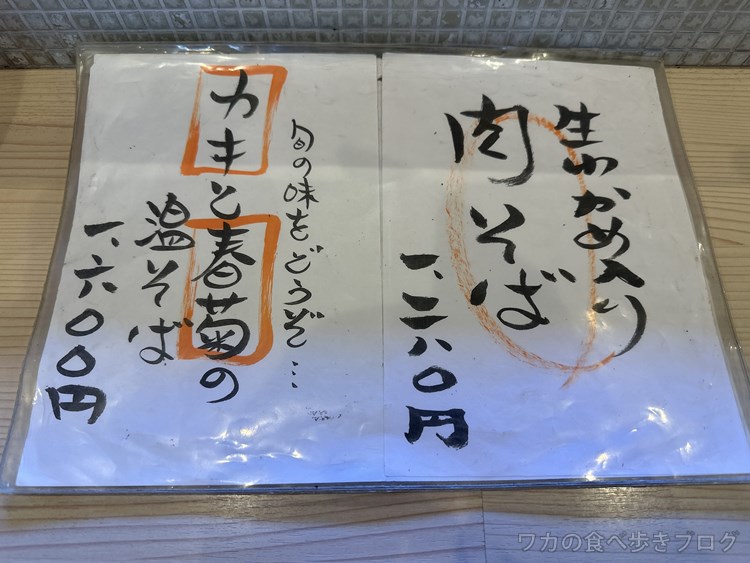 生わかめ入り
肉そば
一、二八〇円
旬の味をどうぞ…
カキと春菊の
温そば
一、六〇〇円
ワカの食べ歩きブログ